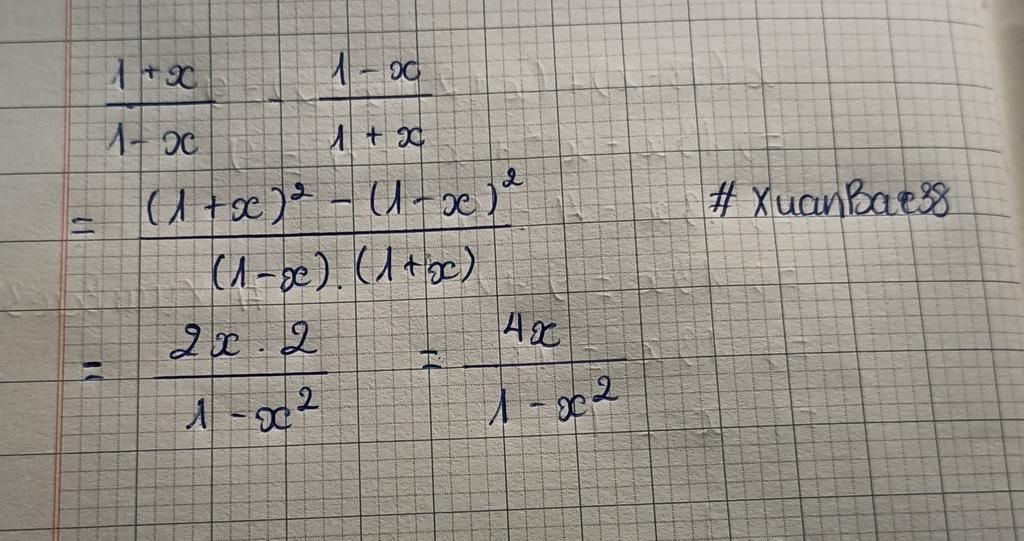 (1+x)/(1-x) - (1-x)/(1+x)
= ((1+x)² - (1-x)²)/((1-x).(1+x))
# XuanBae38
= (2x . 2)/(1-x²) = 4x/(1-x²)